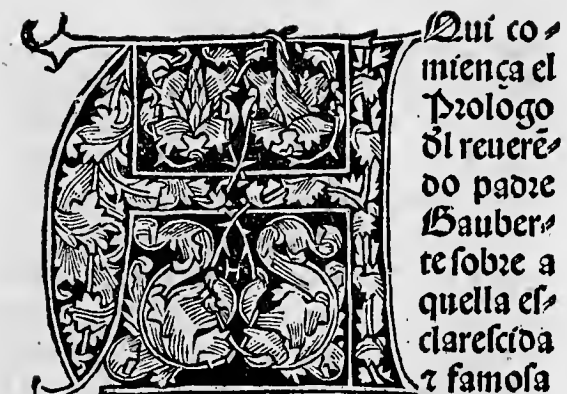 AQui co⸗
miença el
Prologo
đl reuerē⸗
do padre
Gauber⸗
te sobre a
quella es⸗
clarescida
⁊ famosa